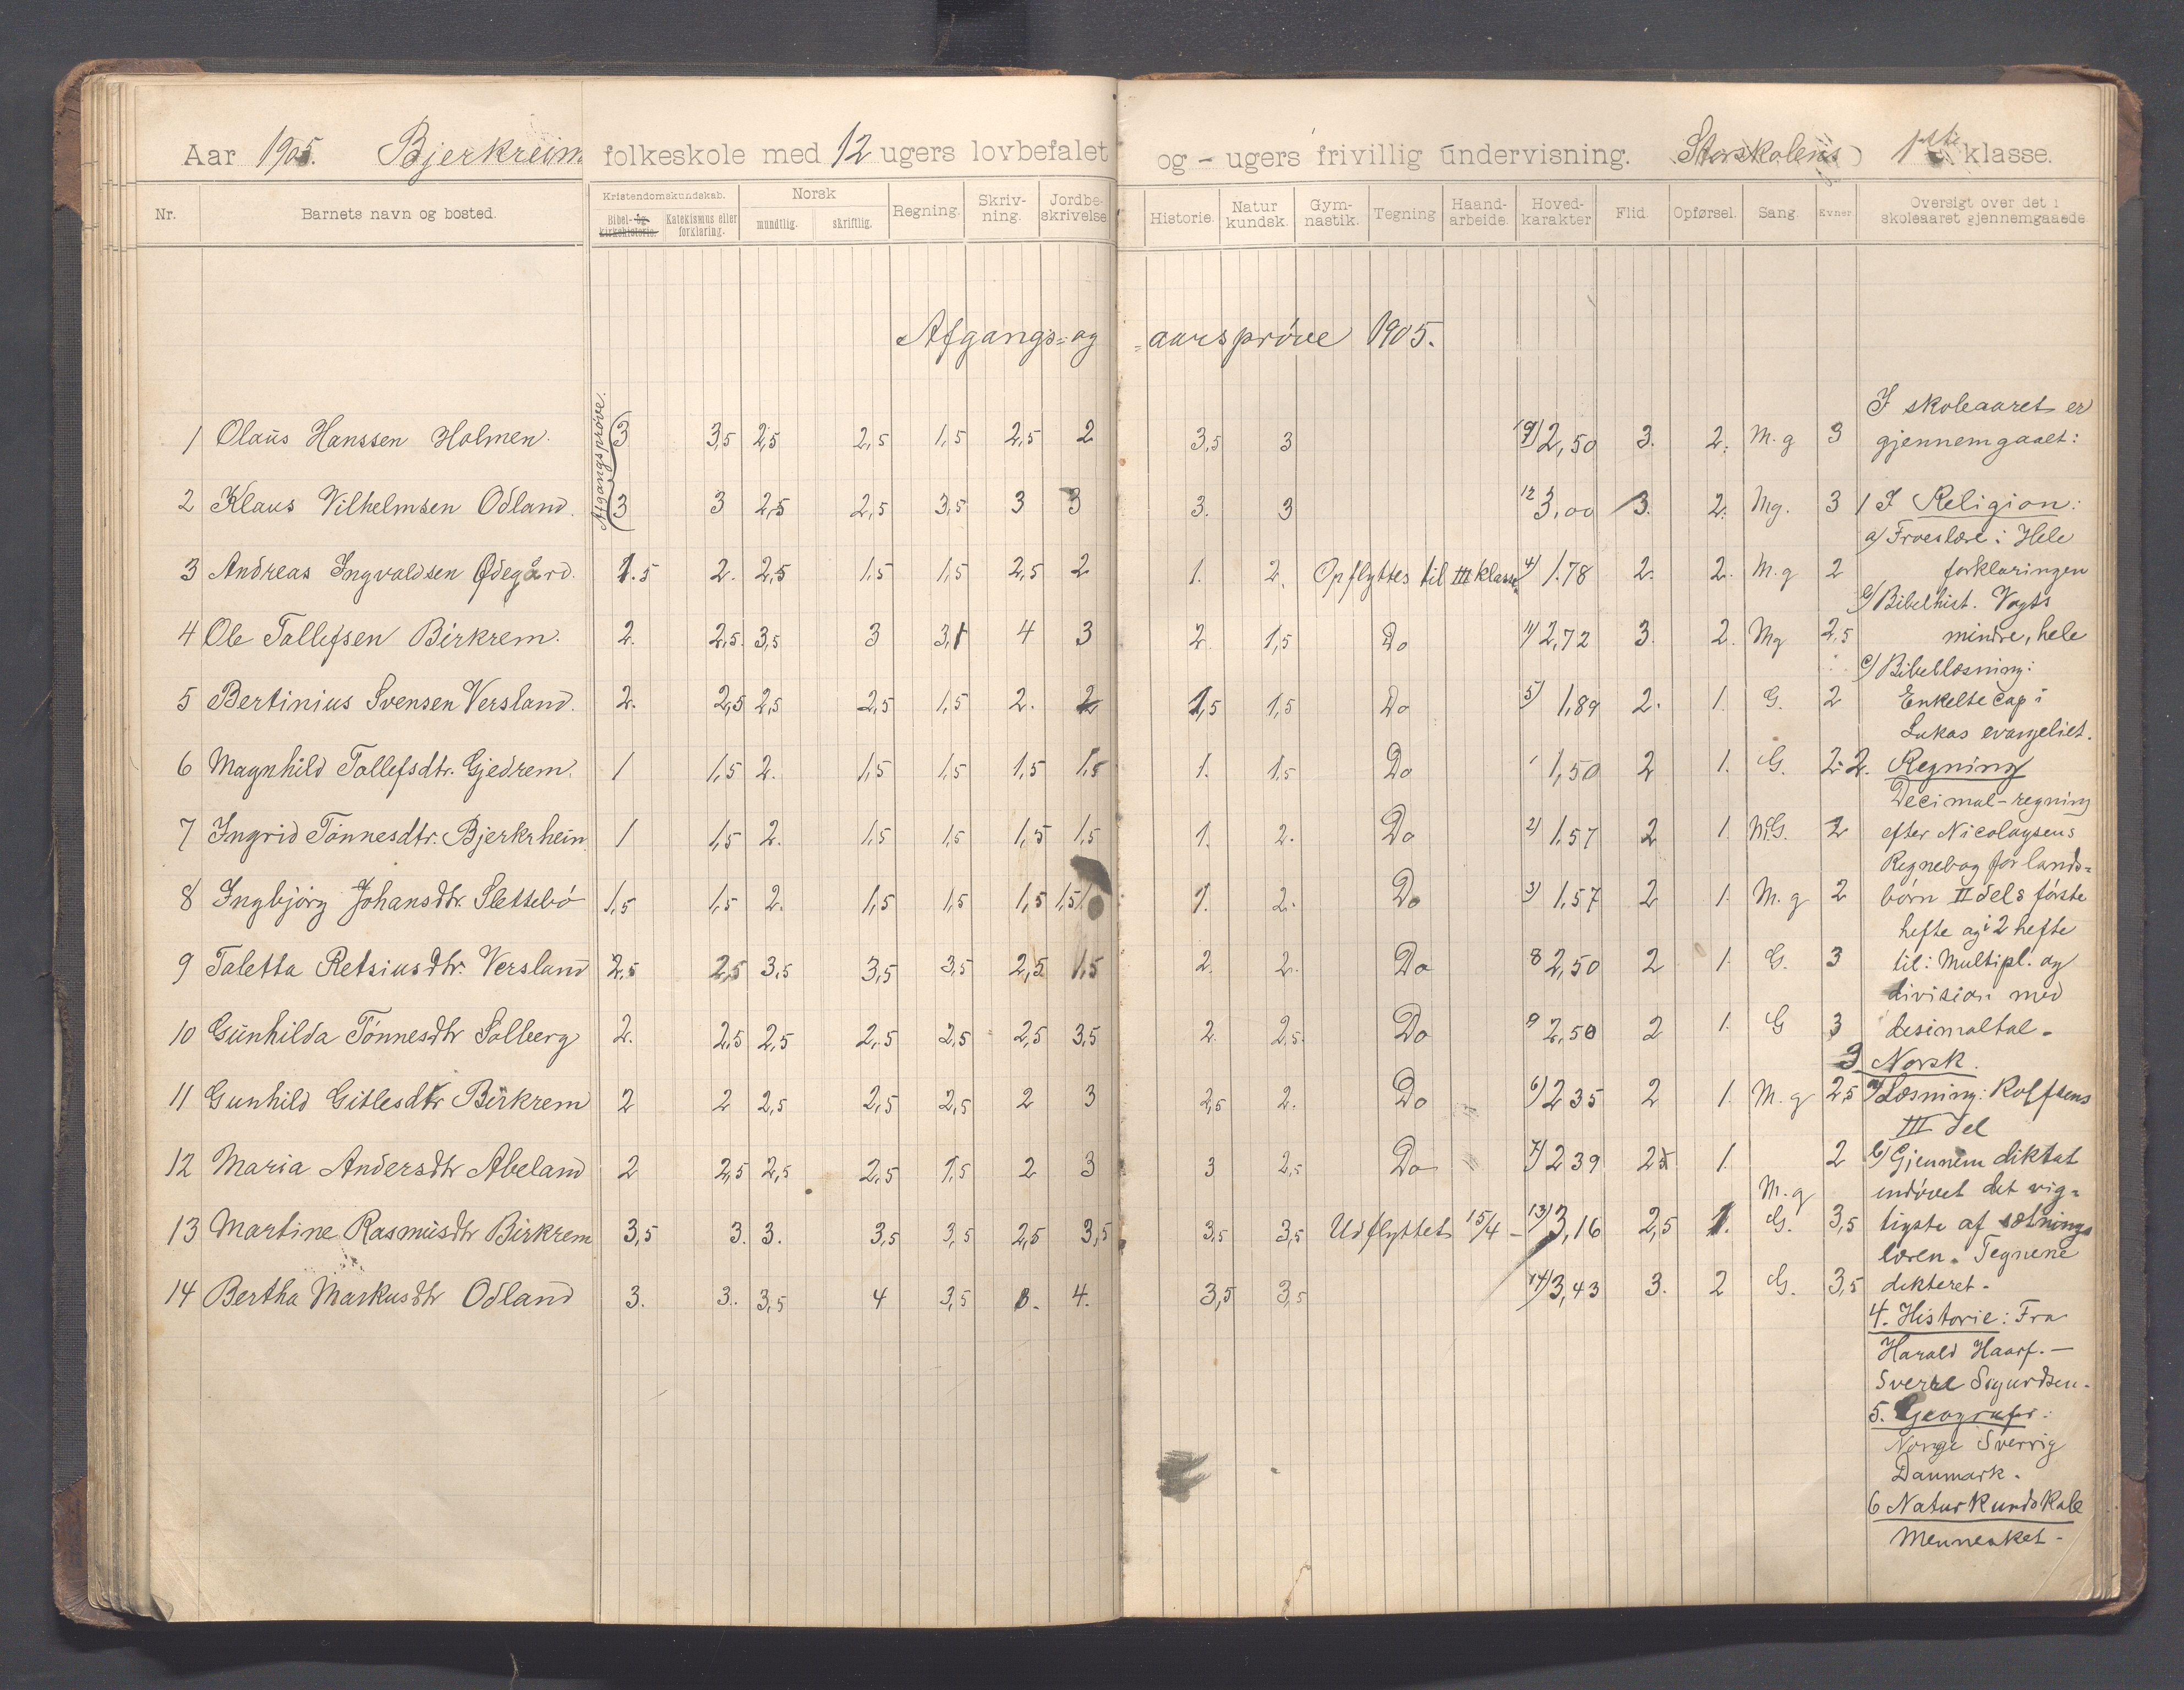 Aar 1905. Bjerkreim folkeskole med 12 ugers lovbefalet og - ugers frivillig undervisning. Storskolens 1ste klasse.
Nr. Barnets navn og bosted. Kristendomskundskab. Bibel- og kirkehistorie. Katekismus eller forklaring. Norsk mundtlig. skriftlig. Regning. Skriv-ning. Jordbe-skrivelse Historie. Natur kundsk. Gym-nastik. Tegning Haand-arbeide. Hoved-karakter Flid. Opførsel. Sang. Evner Oversigt over det i skoleaaret gjennemgaaede
Afgangs= og =aarsprøve 1905.
Afgangsprøve.
1 Olaus Hanssen Holmen. 3 3,5 2,5 2,5 1,5 2,5 2 3,5 3 2,50 3. 2. M.g 3
2 Klaus Vilhelmsen Odland. 3 3 2,5 2,5 3,5 3 3 3. 3 12 3,00 3. 2. Mg. 3
3 Andreas Ingvaldsen Ødegård. 1.5 2. 2,5 1,5 1,5 2,5 2 1. 2. Opflyttes til III klasse 4) 1.78 2. 2. M.g 2
4 Ole Tollefsen Birkrem. 2. 2,5. 3,5 3 3,1 4 3 2. 1,5 Do 11) 2,72 3. 2. Mg 2,5
5 Bertinius Svensen Versland. 2. 2,5 2,5 2,5 1,5 2. 2 1,5 1,5 Do 5) 1,89 2. 1. G. 2
6 Magnhild Tollefsdtr. Gjedrem. 1 1,5 2. 1,5 1,5 1,5 1,5 1. 1,5 Do 1,50 2 1. G. 2.
7 Ingrid Tönnesdtr. Bjerkrheim 1 1,5 2. 1,5 1,5 1,5 1,5 1. 2. Do 2) 1,57 2 1. M.G. 2
8 Ingbjörg Johansdtr. Slettebö 1,5 1,5 2. 1,5 1,5 1,5 1,5 1. 2. Do 3) 1,57 2 1. M.g 2
9 Taletta Retsiusdtr. Versland 2,5 2,5 3,5 3,5 3,5 2,5 1,5 2. 2. Do 8 2,50 2 1. G. 3
10 Gunhilda Tönnesdtr Solberg 2. 2,5 2,5 2,5 2,5 2,5 3,5 2. 2,5. Do 9 2,50 2 1. G 3
11 Gunhild Gitlesdtr Birkrem 2 2 2,5 2,5 2,5 2 3 2,5 2. Do 6) 2 35 2 1. M.g 2,5
12 Maria Andersdtr Abeland 2 2,5 2,5 2,5 1,5 2 3 3 2,5 Do 7) 2 39 2,5 1. M.g 2
13 Martine Rasmusdtr Birkrem 3,5 3. 3. 3,5 3,5 2,5 3,5 3,5 3,5 Udflyttet 15/4 - 13) 3,16 2,5 1. G. 3,5
14 Bertha Markusdtr Odland 3. 3. 3,5 4 3,5 4. 3,5 3,5 14) 3,43 3. 2 G. 3,5
I skoleaaret er
gjennemgaaet:
1 I Religion:
a) Troeslære: Hele
forklaringen
b) Bibelhist. Vogts
mindre, hele
c) Bibellæsning:
Enkelte cap i
Lukas evangeliet.
2. Regning
Decimal-regning
efter Nicolaysens
Regnebog for lands=
börn II dels förste
hefte og i 2 hefte
til: Multipl. og
division med
desimaltal.
3 Norsk.
a) Læsning: Rolfsens
III del
b) Gjennem diktat
indövet det vig=
tigste af sætnings
læren. Tegnene
dikteret.
4. Historie: Fra
Harald Haarf. —
Sverre Sigurdsen.
5. Geografi:
Norge Sverrig
Danmark.
6 Naturkundskab
Mennesket.